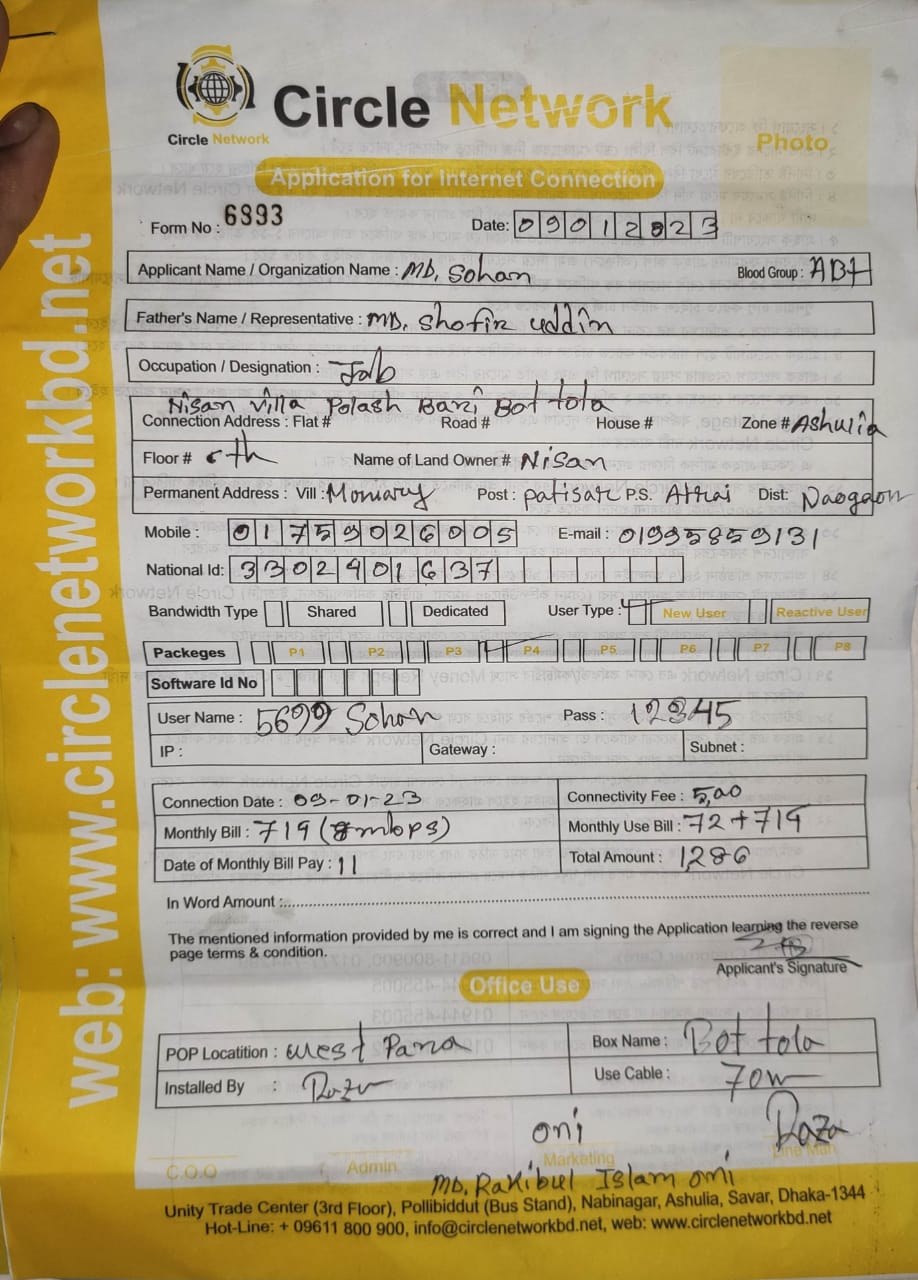 web: www.circlenetworkbd.net
Circle Network
Circle Network
Photo
Application for Internet Connection
Form No : 6993
Date: 09012023
Applicant Name / Organization Name : MD. Sohan Blood Group : AB+
Father's Name / Representative : MD. Shofik uddin
Occupation / Designation : Job
Nisan villa Polash Bari Bottola
Connection Address : Flat # Road # House # Zone # Ashulia
Floor # 6th Name of Land Owner # Nisan
Permanent Address : Vill : Moniary Post : patisar P.S. Attrai Dist: Naogaon
Mobile : 01759026005 E-mail : 01995859131
National Id: 3302401637
Bandwidth Type Shared Dedicated User Type : New User Reactive User
Packeges P1 P2 P3 P4 P5 P6 P7 P8
Software Id No
User Name : 5699 Sohan Pass : 12345
IP : Gateway : Subnet :
Connection Date : 09-01-23 Connectivity Fee : 500
Monthly Bill : 719 (8mbps) Monthly Use Bill : 72+719
Date of Monthly Bill Pay : 11 Total Amount : 1,286
In Word Amount :
The mentioned information provided by me is correct and I am signing the Application learning the reverse
page terms & condition.
Applicant's Signature
Office Use
POP Locatition : west Para Box Name : Bottola
Installed By : Razu Use Cable : 70m
oni Raza
C.O.O Admin Marketing Line Man
MD. Rakibul Islam oni
Unity Trade Center (3rd Floor), Pollibiddut (Bus Stand), Nabinagar, Ashulia, Savar, Dhaka-1344
Hot-Line: + 09611 800 900, info@circlenetworkbd.net, web: www.circlenetworkbd.net